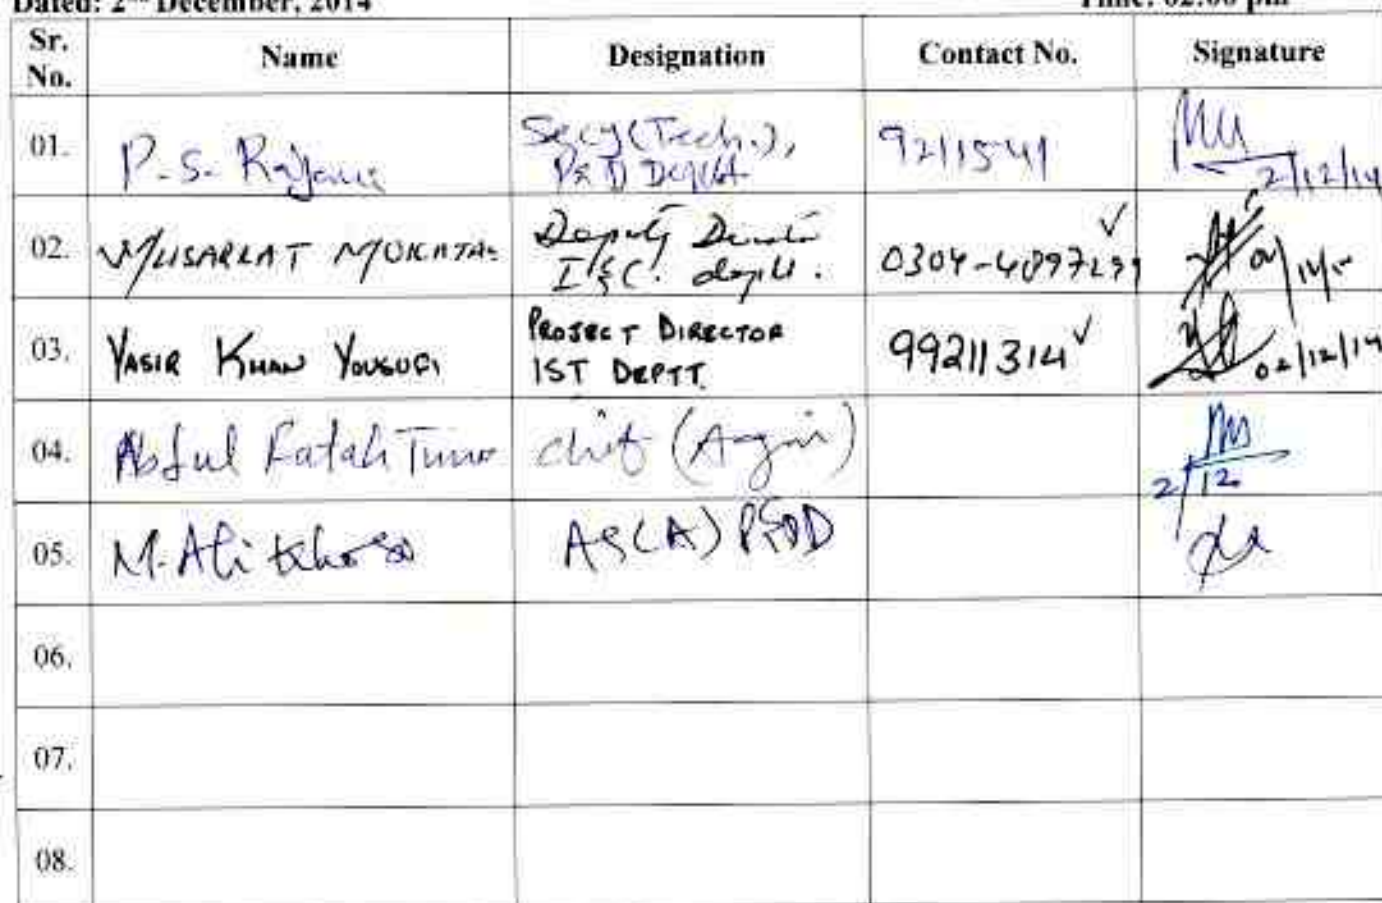 Dated: 2nd December, 2014 Time: 02:00 pm
Sr. No. Name Designation Contact No. Signature
01. P.S. Rajani Secy (Tech.), P&D Deptt. 9211541 2/12/14
02. MUSARRAT Deputy I&C. deptt.
03. YASIR KHAN YOUSUFI PROJECT DIRECTOR IST DEPTT. 99211314 ✓ 02/12/14
04. Abdul Fatah Tunio Chief (Agri) 2/12
05. M. Ali Khoso AS(A) P&DD
06.
07.
08.